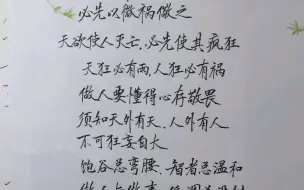 必先以微祸儆之
天欲使人灭亡,必先使其疯狂
天狂必有雨,人狂必有祸
做人要懂得心存敬畏
须知天外有天、人外有人
不可狂妄自大
饱谷总弯腰、智者总温和